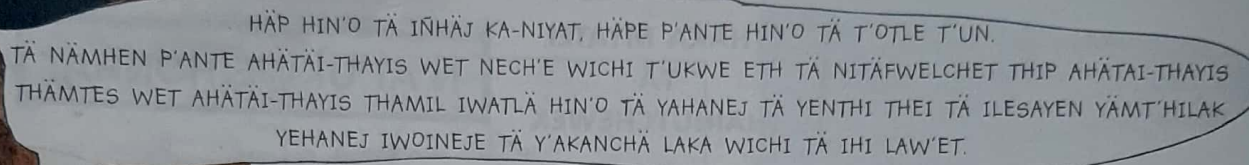 HÄP HIN'O TÄ IÑHÄJ KA-NIYAT, HÄPE P'ANTE HIN'O TÄ T'OTLE T'UN.
TÄ NÄMHEN P'ANTE AHÄTÄI-THAYIS WET NECH'E WICHI T'UKWE ETH TÄ NITÄFWELCHET THIP AHÄTAI-THAYIS
THÄMTES WET AHÄTÄI-THAYIS THAMIL IWATLÄ HIN'O TÄ YAHANEJ TÄ YENTHI THEI TÄ ILESAYEN YÄMT'HILAK
YEHANEJ IWOINEJE TÄ Y'AKANCHÄ LAKA WICHI TÄ IHI LAW'ET.